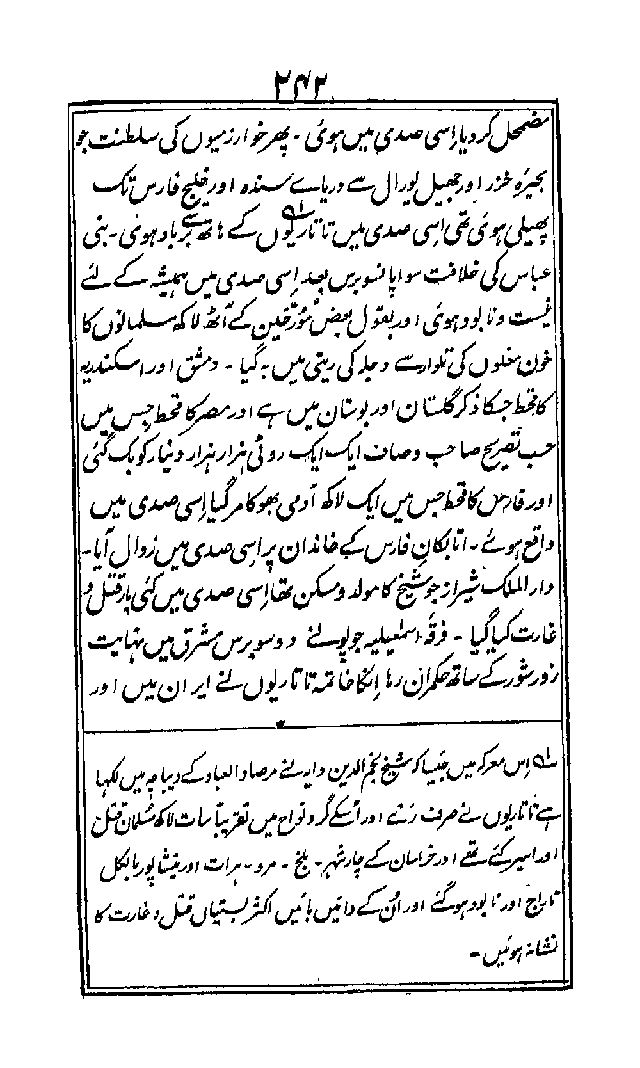 ۲۴۲
مضمحل کر دیا اِسی صدی میں ہوئی ۔ پھر خوارزمیوں کی سلطنت جو
بحیرۂ خزر اور جھیل یورال سے دریاے سندہ اور خلیج فارس تک
پھیلی ہوئی تھی اسی صدی میں تاتاریوں کے ہاتھ سے برباد ہوئی ۔ بنی
عباس کی خلافت سوا پانسو برس بعد اِسی صدی میں ہمیشہ کے لئے
نیست و نابود ہوئی اور بقول بعض مؤرخین کے آٹھ لاکھ مسلمانوں کا
خون مغلوں کی تلوار سے دجلہ کی ریتی میں بہ گیا ۔ دمشق اور اسکندریہ
کا قحط جسکا ذکر گلستان اور بوستان میں ہے اور مصر کا قحط جس میں
حسب تصریح صاحب وصاف ایک ایک روٹی ہزار ہزار دینار کو بک گئی
اور فارس کا قحط جس میں ایک لاکھ آدمی بھوکا مر گیا اِسی صدی میں
واقع ہوئے ۔ اتابکانِ فارس کے خاندان پر اسی صدی میں زوال آیا ۔
دار الملک شیراز جو شیخ کا مولد و مسکن تھا اِسی صدی میں کئی بار قتل و
غارت کیا گیا ۔ فرقۂ اسمٰعیلیہ جو پونے دو سو برس مشرق میں نہایت
زور شور کے ساتھ حکمران رہا اِنکا خاتمہ تاتاریوں نے ایران میں اور
۱؎ اِس معرکہ میں جیسا کہ شیخ نجم الدین دایہ نے مرصاد العباد کے دیباچہ میں لکھا
ہے تاتاریوں نے صرف رَے اور اُسکے گرد نواح میں تقریباً سات لاکھ مسلمان قتل
اور اسیر کئے تھے اور خراسان کے چار شہر ۔ بلخ ۔ مرو ۔ ہرات اور نیشاپور بالکل
تاراج اور نابود ہو گئے اور اُن کے دائیں بائیں اکثر بستیاں قتل و غارت کا
نشانہ ہوئیں ۔